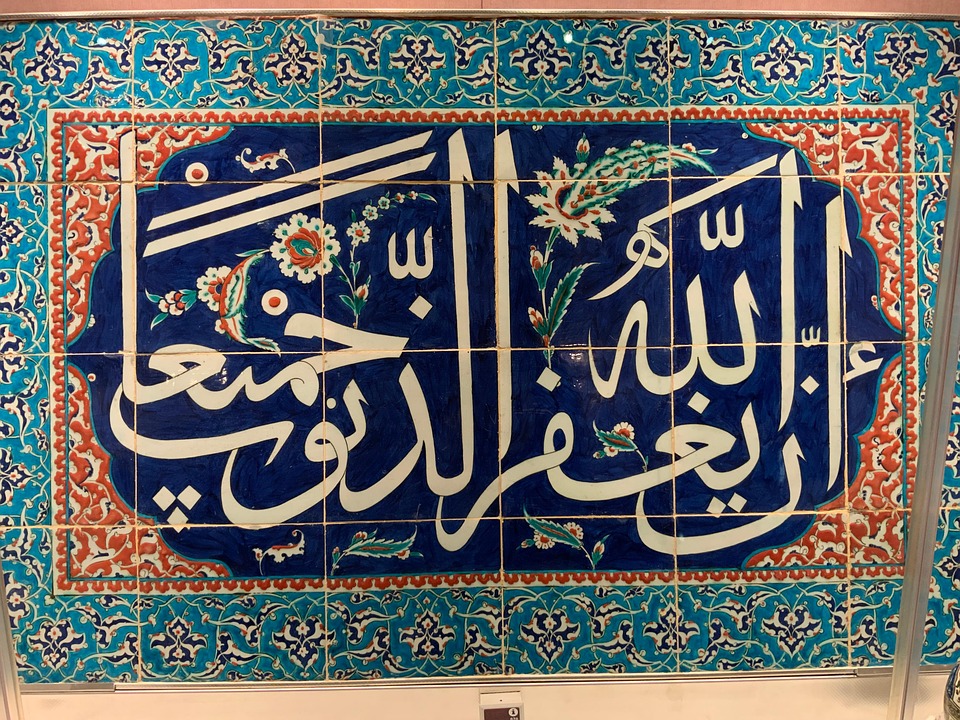 إنّ اللّٰه يغفر الذّنوب جميعًا